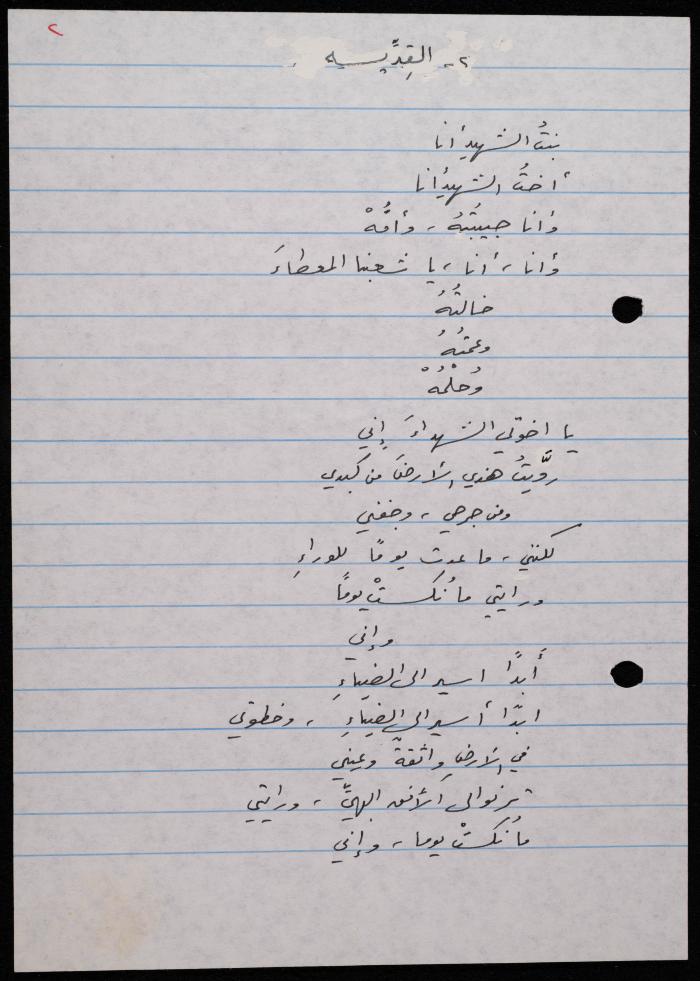 ٢
٢- القِدِّيسه
بنتُ الشهيدِ أنا
أختُ الشهيدِ أنا
وأنا حبيبتُهُ، وأمُّهْ
وأنا، أنا، يا شعبنا المعطاءَ
خالتُهُ
وعمتُهُ
وحُلْمُهْ
يا اخوتي الشهداءَ إني
روَّيتُ هذي الأرضَ من كبدي
ومن جرحي، وجفني
لكنني، ما عدت يومًا للوراءِ
ورايتي ما نُكستْ يومًا
وإني
أبدًا اسير الى الضياءِ
ابدًا أسير الى الضياءِ، وخطوتي
في الارضِ واثقةٌ وعيني
ترنو الى الأفق البهيِّ، ورايتي
ما نُكستْ يوما، وإني